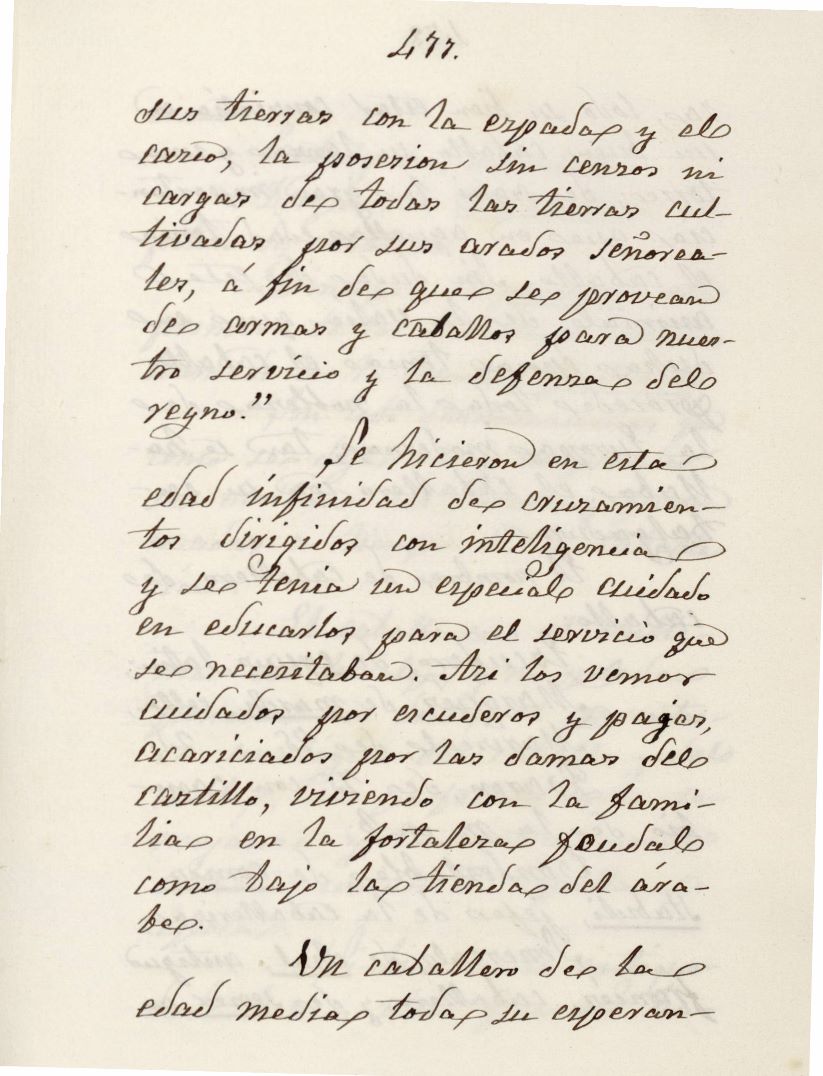 477.
sus tierras con la espada y el
casco, la posesion sin censos ni
cargas de todas las tierras cul-
tivadas por sus arados señorea-
les, á fin de que se provean
de armas y caballos para nues-
tro servicio y la defensa del
reyno."
Se hicieron en esta
edad infinidad de cruzamien-
tos dirigidos con inteligencia
y se tenia un especial cuidado
en educarlos para el servicio que
se necesitaban. Asi los vemos
cuidados por escuderos y pajes,
acariciados por las damas del
castillo, viviendo con la fami-
lia en la fortaleza feudal
como bajo la tienda del ára-
be.
Un caballero de la
edad media toda su esperan-